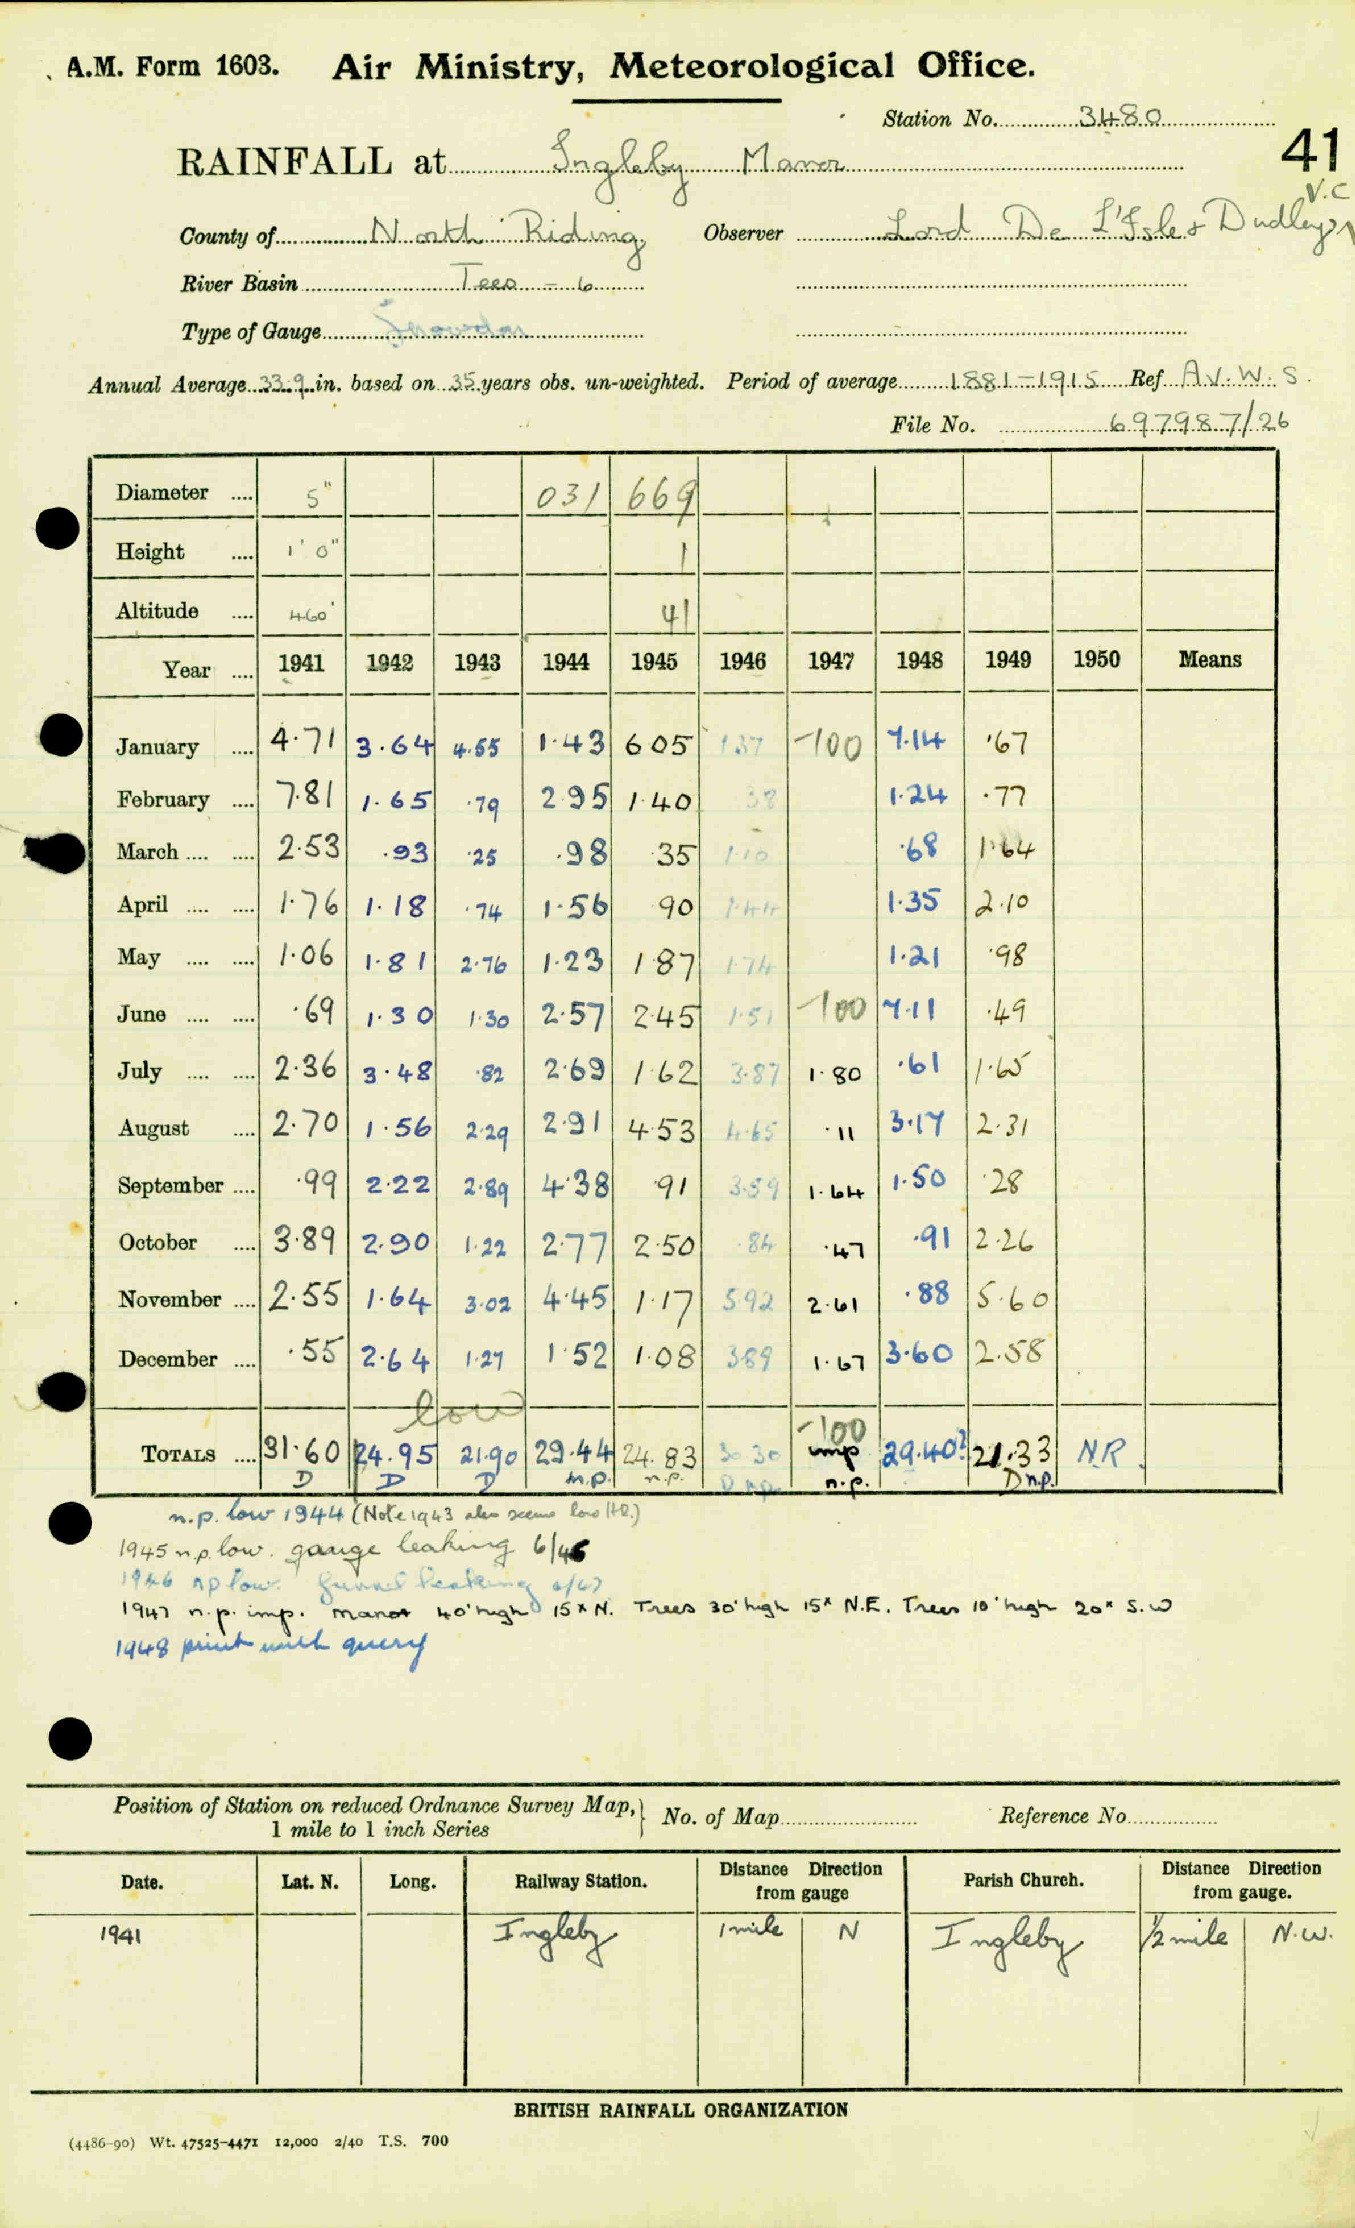 A.M. Form 1603. Air Ministry, Meteorological Office.
Station No. 3480
41
RAINFALL at Ingleby Manor
V.C
County of North Riding Observer Lord De L'Isle & Dudley
River Basin Tees - 6
Type of Gauge Snowdon
Annual Average 33.9 in. based on 35 years obs. un-weighted. Period of average 1881-1915 Ref. Av. W. S.
File No. 697987/26
Diameter .... 5" 031 669
Height .... 1' 0" 1
Altitude .... 460' 41
Year .... 1941 1942 1943 1944 1945 1946 1947 1948 1949 1950 Means
January .... 4.71 3.64 4.55 1.43 6 05 1.37 -100 7.14 .67
February .... 7.81 1.65 .79 2.95 1.40 38 1.24 .77
March .... .... 2.53 .93 .25 .98 .35 1.10 .68 1.64
April .... .... 1.76 1.18 .74 1.56 .90 1.44 1.35 2.10
May .... .... 1.06 1.81 2.76 1.23 1.87 1.74 1.21 .98
June .... .... .69 1.30 1.30 2.57 2.45 1.51 -100 7.11 .49
July .... .... 2.36 3.48 .82 2.69 1.62 3.87 1.80 .61 1.65
August .... 2.70 1.56 2.29 2.91 4.53 4.65 .11 3.17 2.31
September .... .99 2.22 2.89 4.38 .91 3.59 1.64 1.50 .28
October .... 3.89 2.90 1.22 2.77 2.50 .84 .47 .91 2.26
November .... 2.55 1.64 3.02 4.45 1.17 5.92 2.61 .88 5.60
December .... .55 2.64 1.27 1.52 1.08 3.89 1.67 3.60 2.58
low -100
TOTALS .... 31.60 24.95 21.90 29.44 24.83 30.30 imp 29.40? 21.33 N.R.
D D D n.p. n.p. D n.p. n.p. D n.p.
n.p. low 1944 (Note 1943 also seems low)
1945 n.p. low. gauge leaking 6/46
1946 n.p low. funnel leaking 6/47
1947 n.p. imp. Manor 40' high 15x N. Trees 30' high 15x N.E. Trees 10' high 20x S.W
1948 print with query
Position of Station on reduced Ordnance Survey Map, } No. of Map Reference No.
1 mile to 1 inch Series
Date. Lat. N. Long. Railway Station. Distance Direction from gauge Parish Church. Distance Direction from gauge.
1941 Ingleby 1 mile N Ingleby 1/2 mile N.W.
BRITISH RAINFALL ORGANIZATION
(4486-90) Wt. 47525-4471 12,000 2/40 T.S. 700